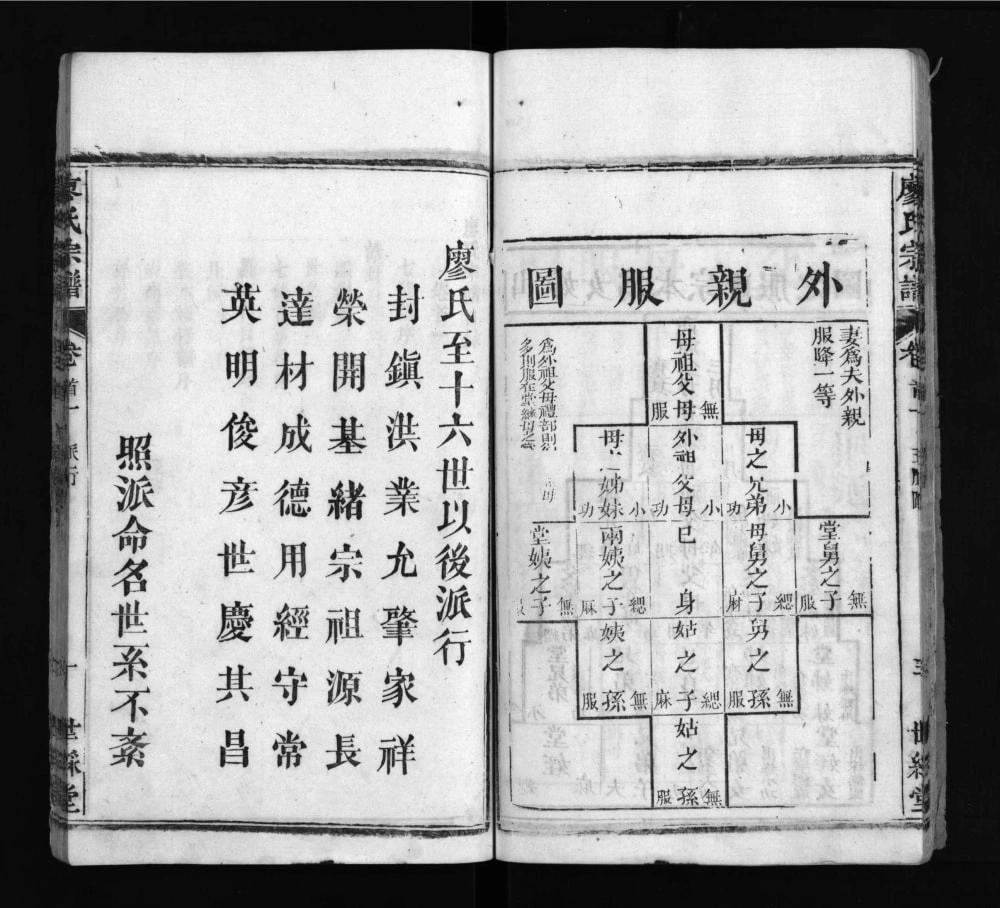 廖氏宗譜
卷首一
世綵堂
外親服圖
妻爲夫外親
服降一等
母祖父母
無服
母之兄弟
小功
外祖父母
小功
母之姊妹
小功
堂舅之子
無服
母舅之子
緦麻
己身
兩姨之子
緦麻
堂姨之子
無服
舅之孫
無服
姑之子
緦麻
姨之孫
無服
姑之孫
無服
爲外祖父母禮部則例
廖氏至十六世以後派行
封鎭洪業允肇家祥
榮開基緒宗祖源長
達材成德用經守常
英明俊彦世慶共昌
照派命名世系不紊
廖氏宗譜
卷首一
派行
一
世綵堂